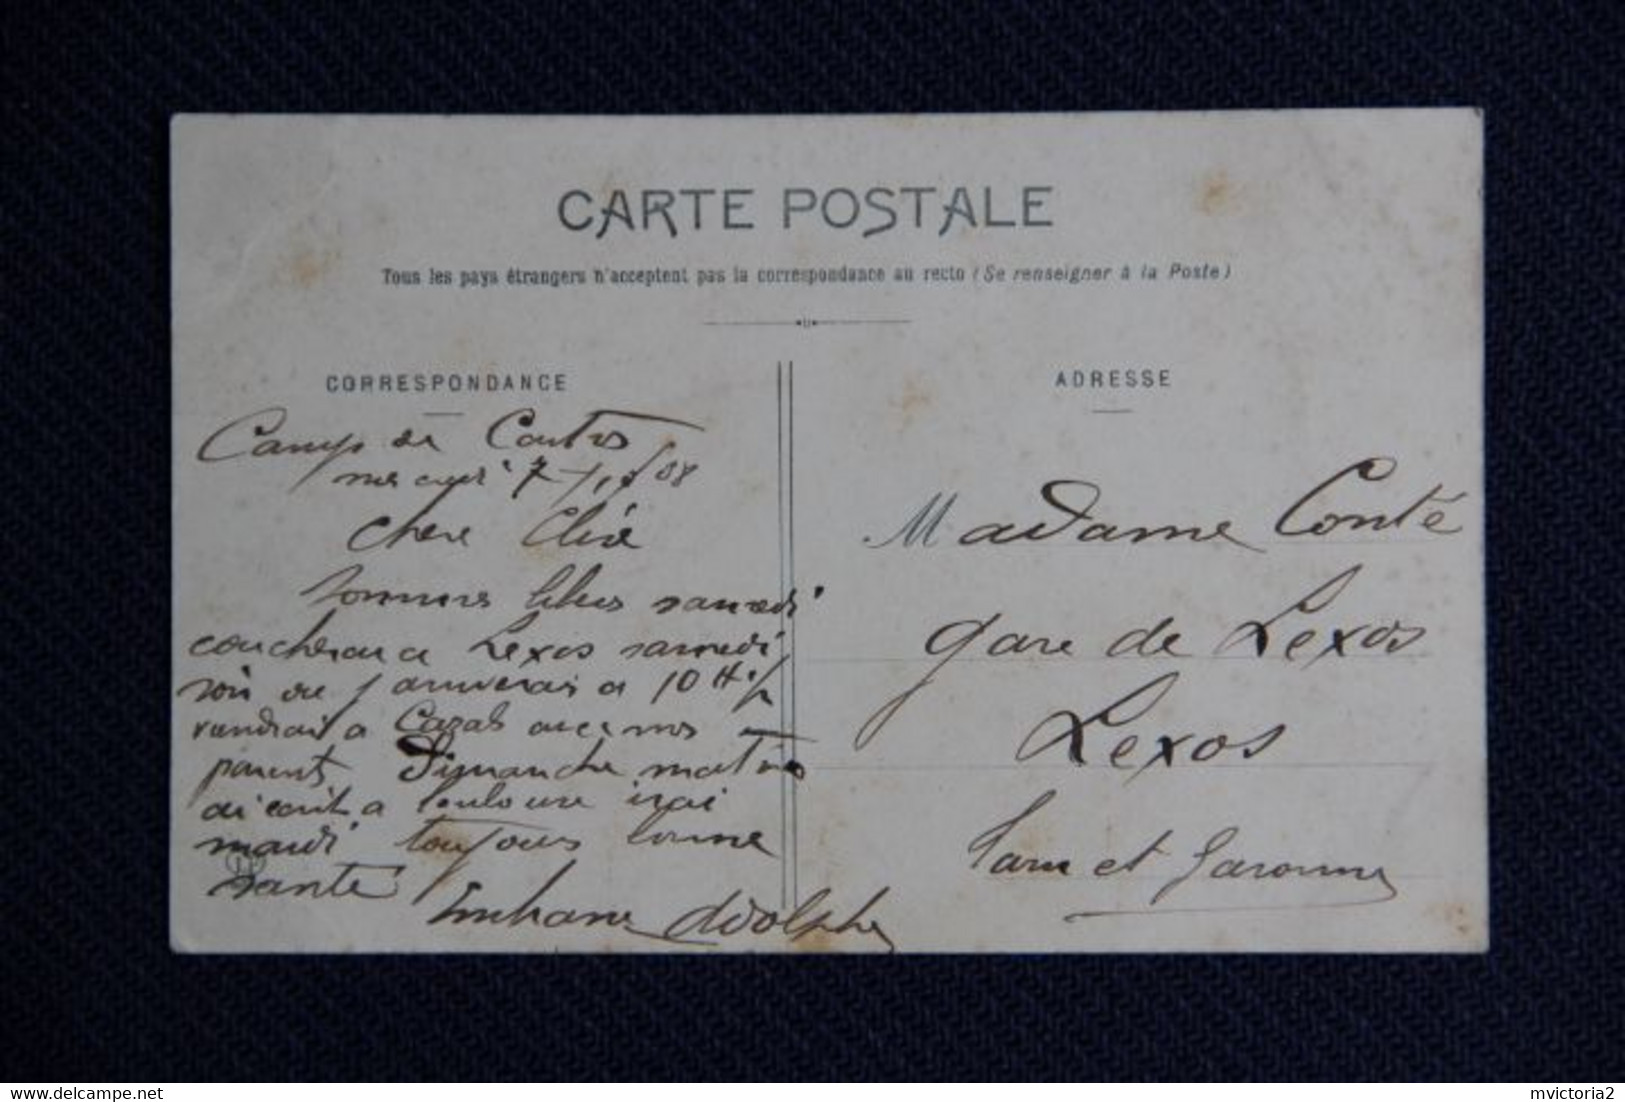 CARTE POSTALE
Tous les pays étrangers n'acceptent pas la correspondance au recto (Se renseigner à la Poste)
CORRESPONDANCE
Camp de
08
chere
sommes libres samedi
coucherai a Lexos samedi
soir ou j'arriverai a 10 H
rendrai a Cazals avec mes
parents Dimanche matin
ai ecrit a toulouse irai
mardi toujours bonne
santé
Adolphe
ADRESSE
Madame Conté
gare de Lexos
Lexos
Tarn et Garonne
mvictoria2